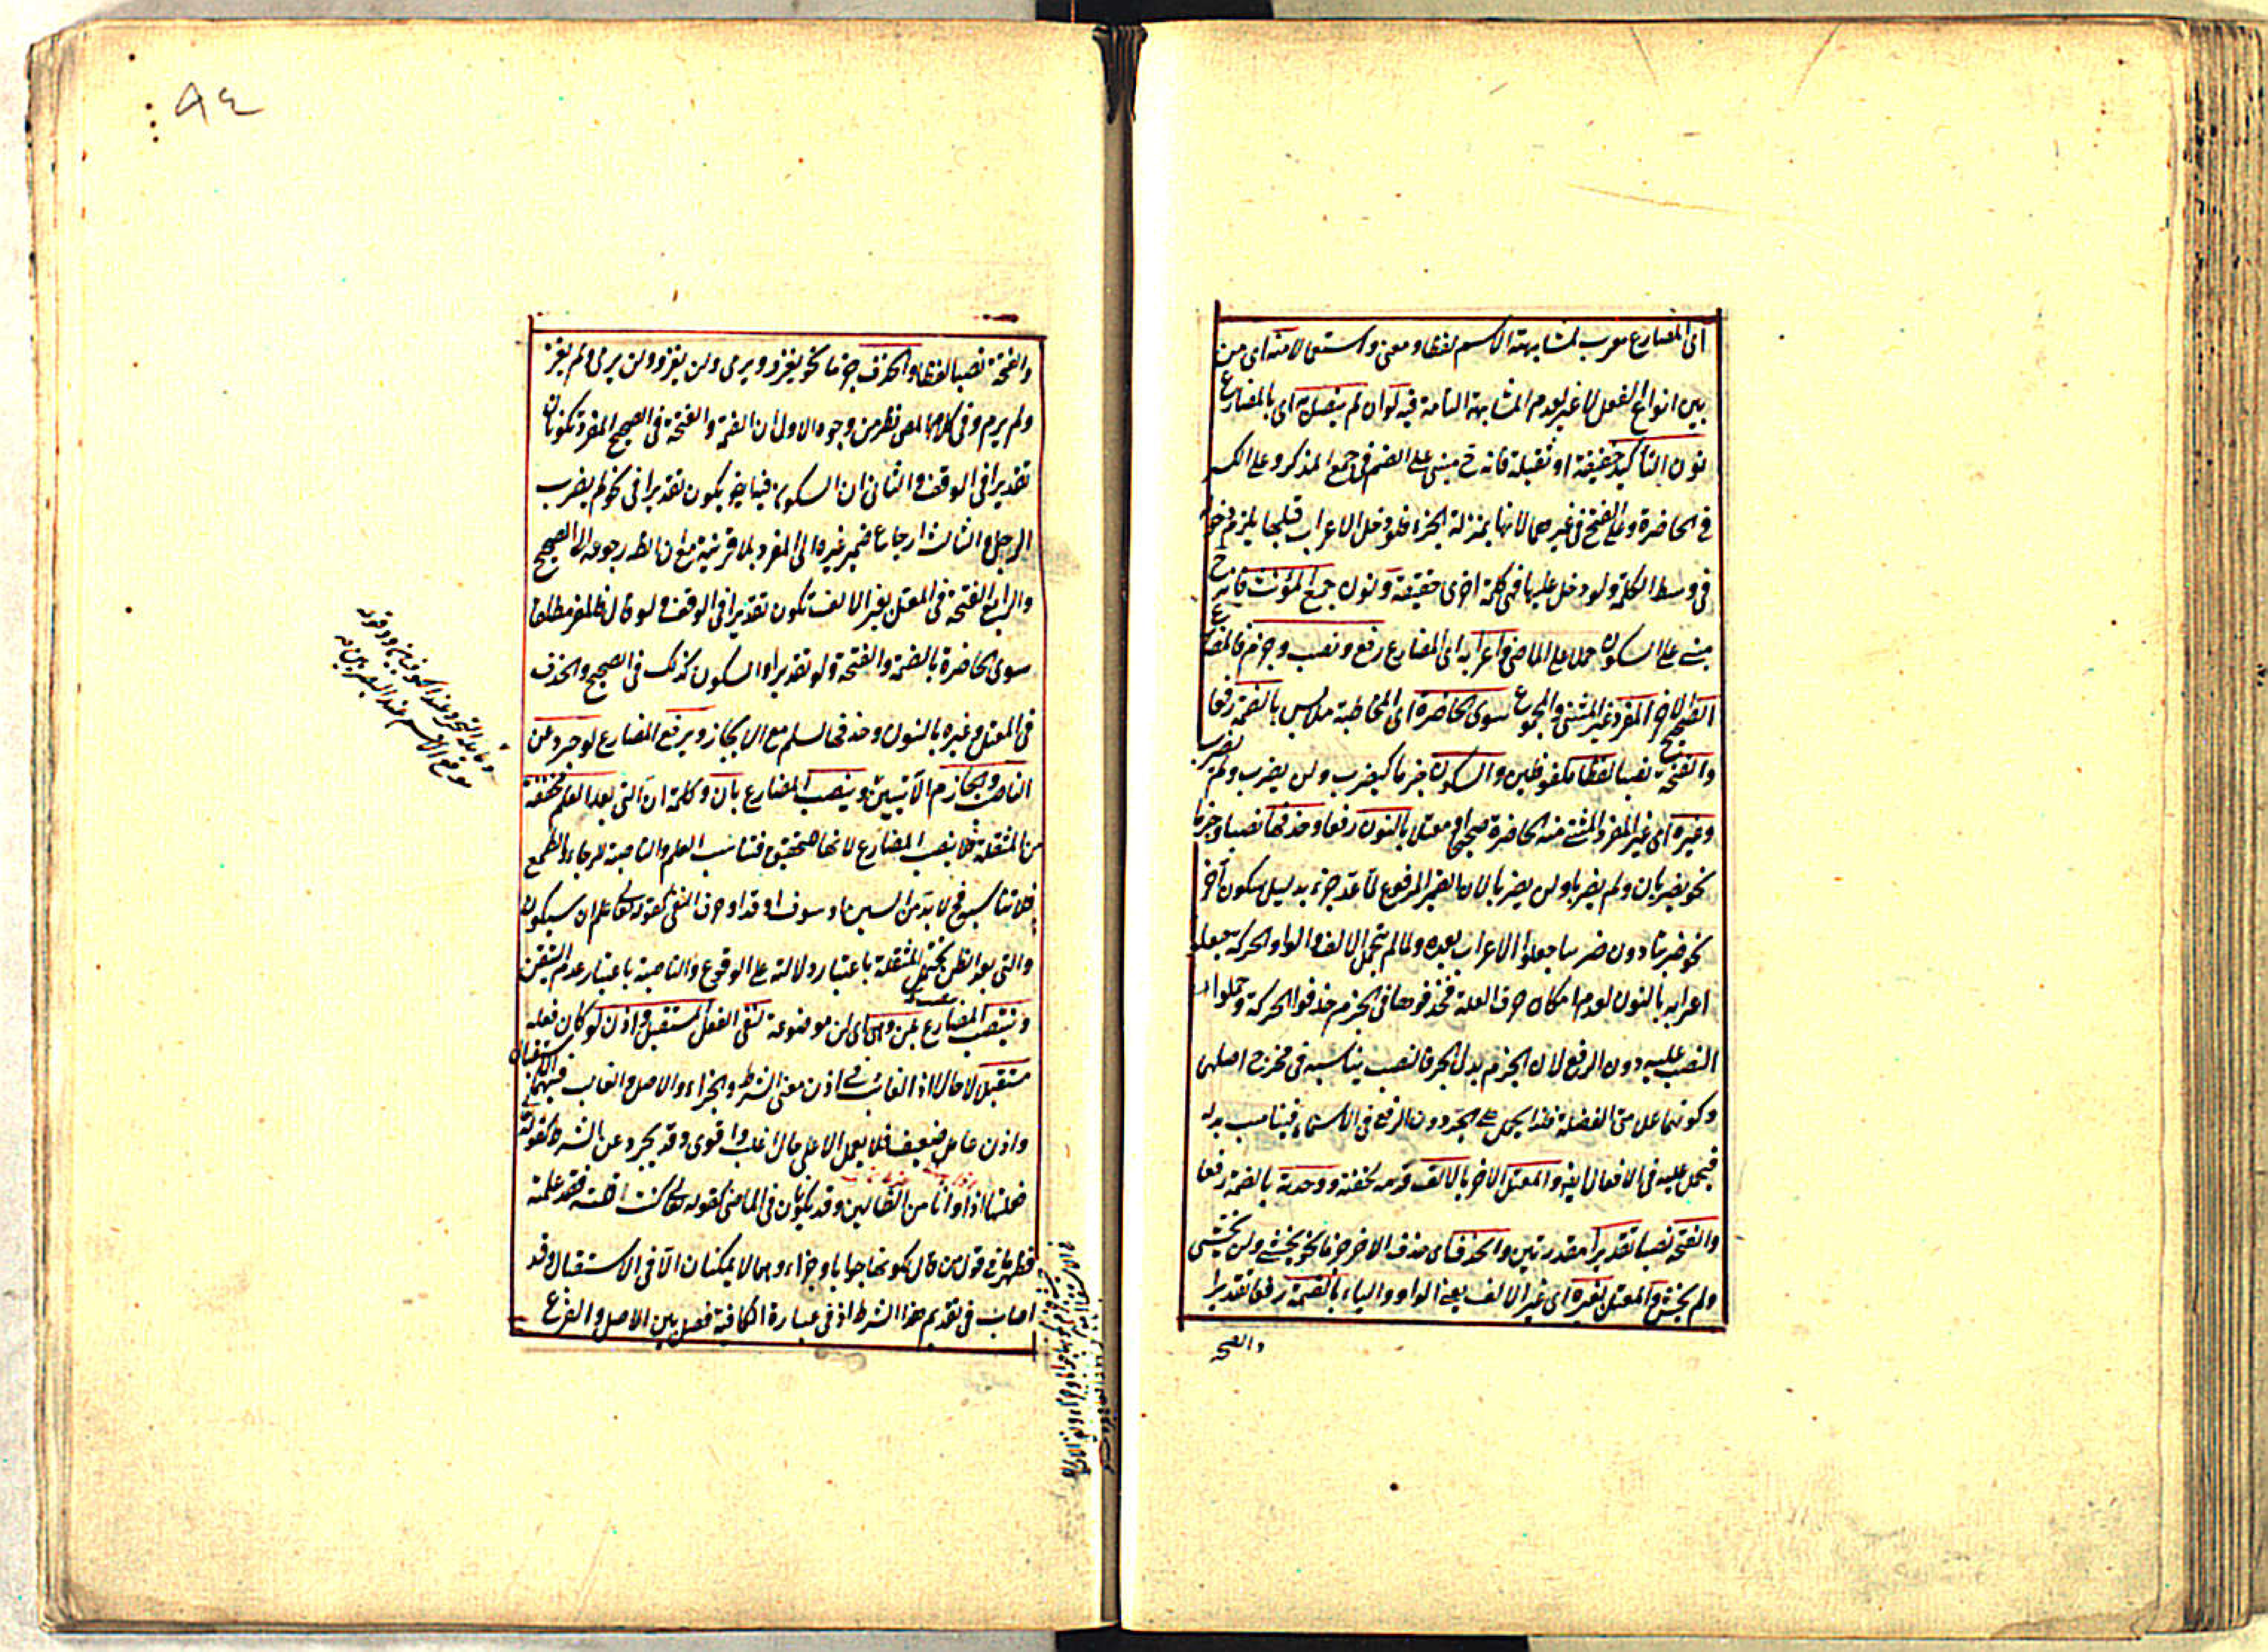 اى المضارع معرب لمشابهته الاسم لفظا ومعنى واستعمالا منه اى من
بين انواع الفعل لا غير لعدم المشابهة التامة فيه لو ان لم يتصل به اى بالمضارع
نون التأكيد خفيفة او ثقيلة فانه ح مبنى على الضم فى جمع المذكر وعلى الكسر
فى الحاضرة وعلى الفتح فى غيرهما لانها بمنزلة الجزء فلو دخل الاعراب قبلها يلزم دخوله
فى وسط الكلمة ولو دخل عليها فهى كلمة اخرى حقيقة ونون جمع المؤنث فانه ح
مبنى على السكون حملا على الماضى واعرابه اى المضارع رفع ونصب وجزم فالمضارع
الصحيح الاخر المفرد غير المثنى والمجموع سوى الحاضرة اى المخاطبة ملابس بالضمة رفعا
والفتحة نصبا لفظا ملفوظين والسكون جزما كيضرب ولن يضرب ولم يضرب
وغيره اى غير المفرد المثنى منه الحاضرة صحيحا او معتلا بالنون رفعا وحذفها نصبا وجزما
نحو يضربان ولم يضربا ولن يضربا لان الضمير المرفوع لما عد جزء بدليل سكون آخر
نحو ضربنا دون ضربنا جعلوا الاعراب بعده ولما لم يتحمل الالف والواو الحركة جعلوا
اعرابه بالنون لعدم امكان حرف العلة فحذفوها فى الجزم حذفوا الحركة وحملوا
النصب عليه دون الرفع لان الجزم بدل الجر فالنصب يناسبه فى مخرج اصلهى
وكونهما علامتى الفضلة فلذا يحمل على الجر دون الرفع فى الاسماء فيناسب بدله
فيحمل عليه فى الافعال ايضا والمعتل الاخر بالالف قدمه لخفته ووحدته بالضمة رفعا
والفتحة نصبا تقديرا مقدرتين والحذف اى حذف الاخر جزما نحو يخشى ولن يخشى
ولم يخش والمعتل بغيره اى غير الالف يعنى الواو والياء بالضمة رفعا تقديرا
والفتحة
٩٤
والفتحة نصبا لفظا والحذف جزما نحو يغزو ويرمى ولن يغزو ولن يرمى ولم يغز
ولم يرم وفى كلام المص نظر من وجوه الاول ان الضمة والفتحة فى الصحيح المفرد تكونان
تقديرا فى الوقف والثانى ان السكون فيها يكون تقديرا فى نحو لم يضرب
الرجل والثالث ارجاع ضمير غيره الى المفرد بلا قرينة مع ان الظ رجوعه الى الصحيح
والرابع الفتحة فى المعتل بغير الالف تكون تقديرا فى الوقف ولو قال فالمفرد مطلقا
سوى الحاضرة بالضمة والفتحة ولو تقديرا والسكون كذلك فى الصحيح والحذف
فى المعتل وغيره بالنون وحذفها لسلم مع الايجاز ويرفع المضارع لو جرد عن
الناصب والجازم الآتيين وينصب المضارع بان وكلمة ان التى بعد العلم مخففة
من المثقلة فلا ينصب المضارع لانها للتحقيق فتناسب العلم والناصبة للرجاء والطمع
فلا تناسبه فح لا بد من السين او سوف او قد او حرف النفى كقوله تعالى علم ان سيكون
والتى بعد الظن يحتمل المثقلة باعتبار دلالته على الوقوع والناصبة باعتبار عدم التيقن
وينتصب المضارع بلن وهى اى لن موضوعة لنفى الفعل المستقبل واذن لو كان فعله
مستقبلا لا حالا اذ الغالب فى اذن معنى الشرط والجزاء والاصل والغالب فيهما الاستقبال
واذن عامل ضعيف فلا يعمل الا على ما لا اغلب واقوى وقد يجرد عن الشرط كقوله
فعلتها اذا وانا من الضالين وقد يكون فى الماضى كقوله تعالى ان كنت قلته فقد علمته
فظهر ما فى قول من قال لكونها جوابا وجزاء وهما لا يمكنان الا فى الاستقبال وقد
اصاب فى تقديم هذا الشرط اذ فى عبارة الكافية فصل بين الاصل والفرع